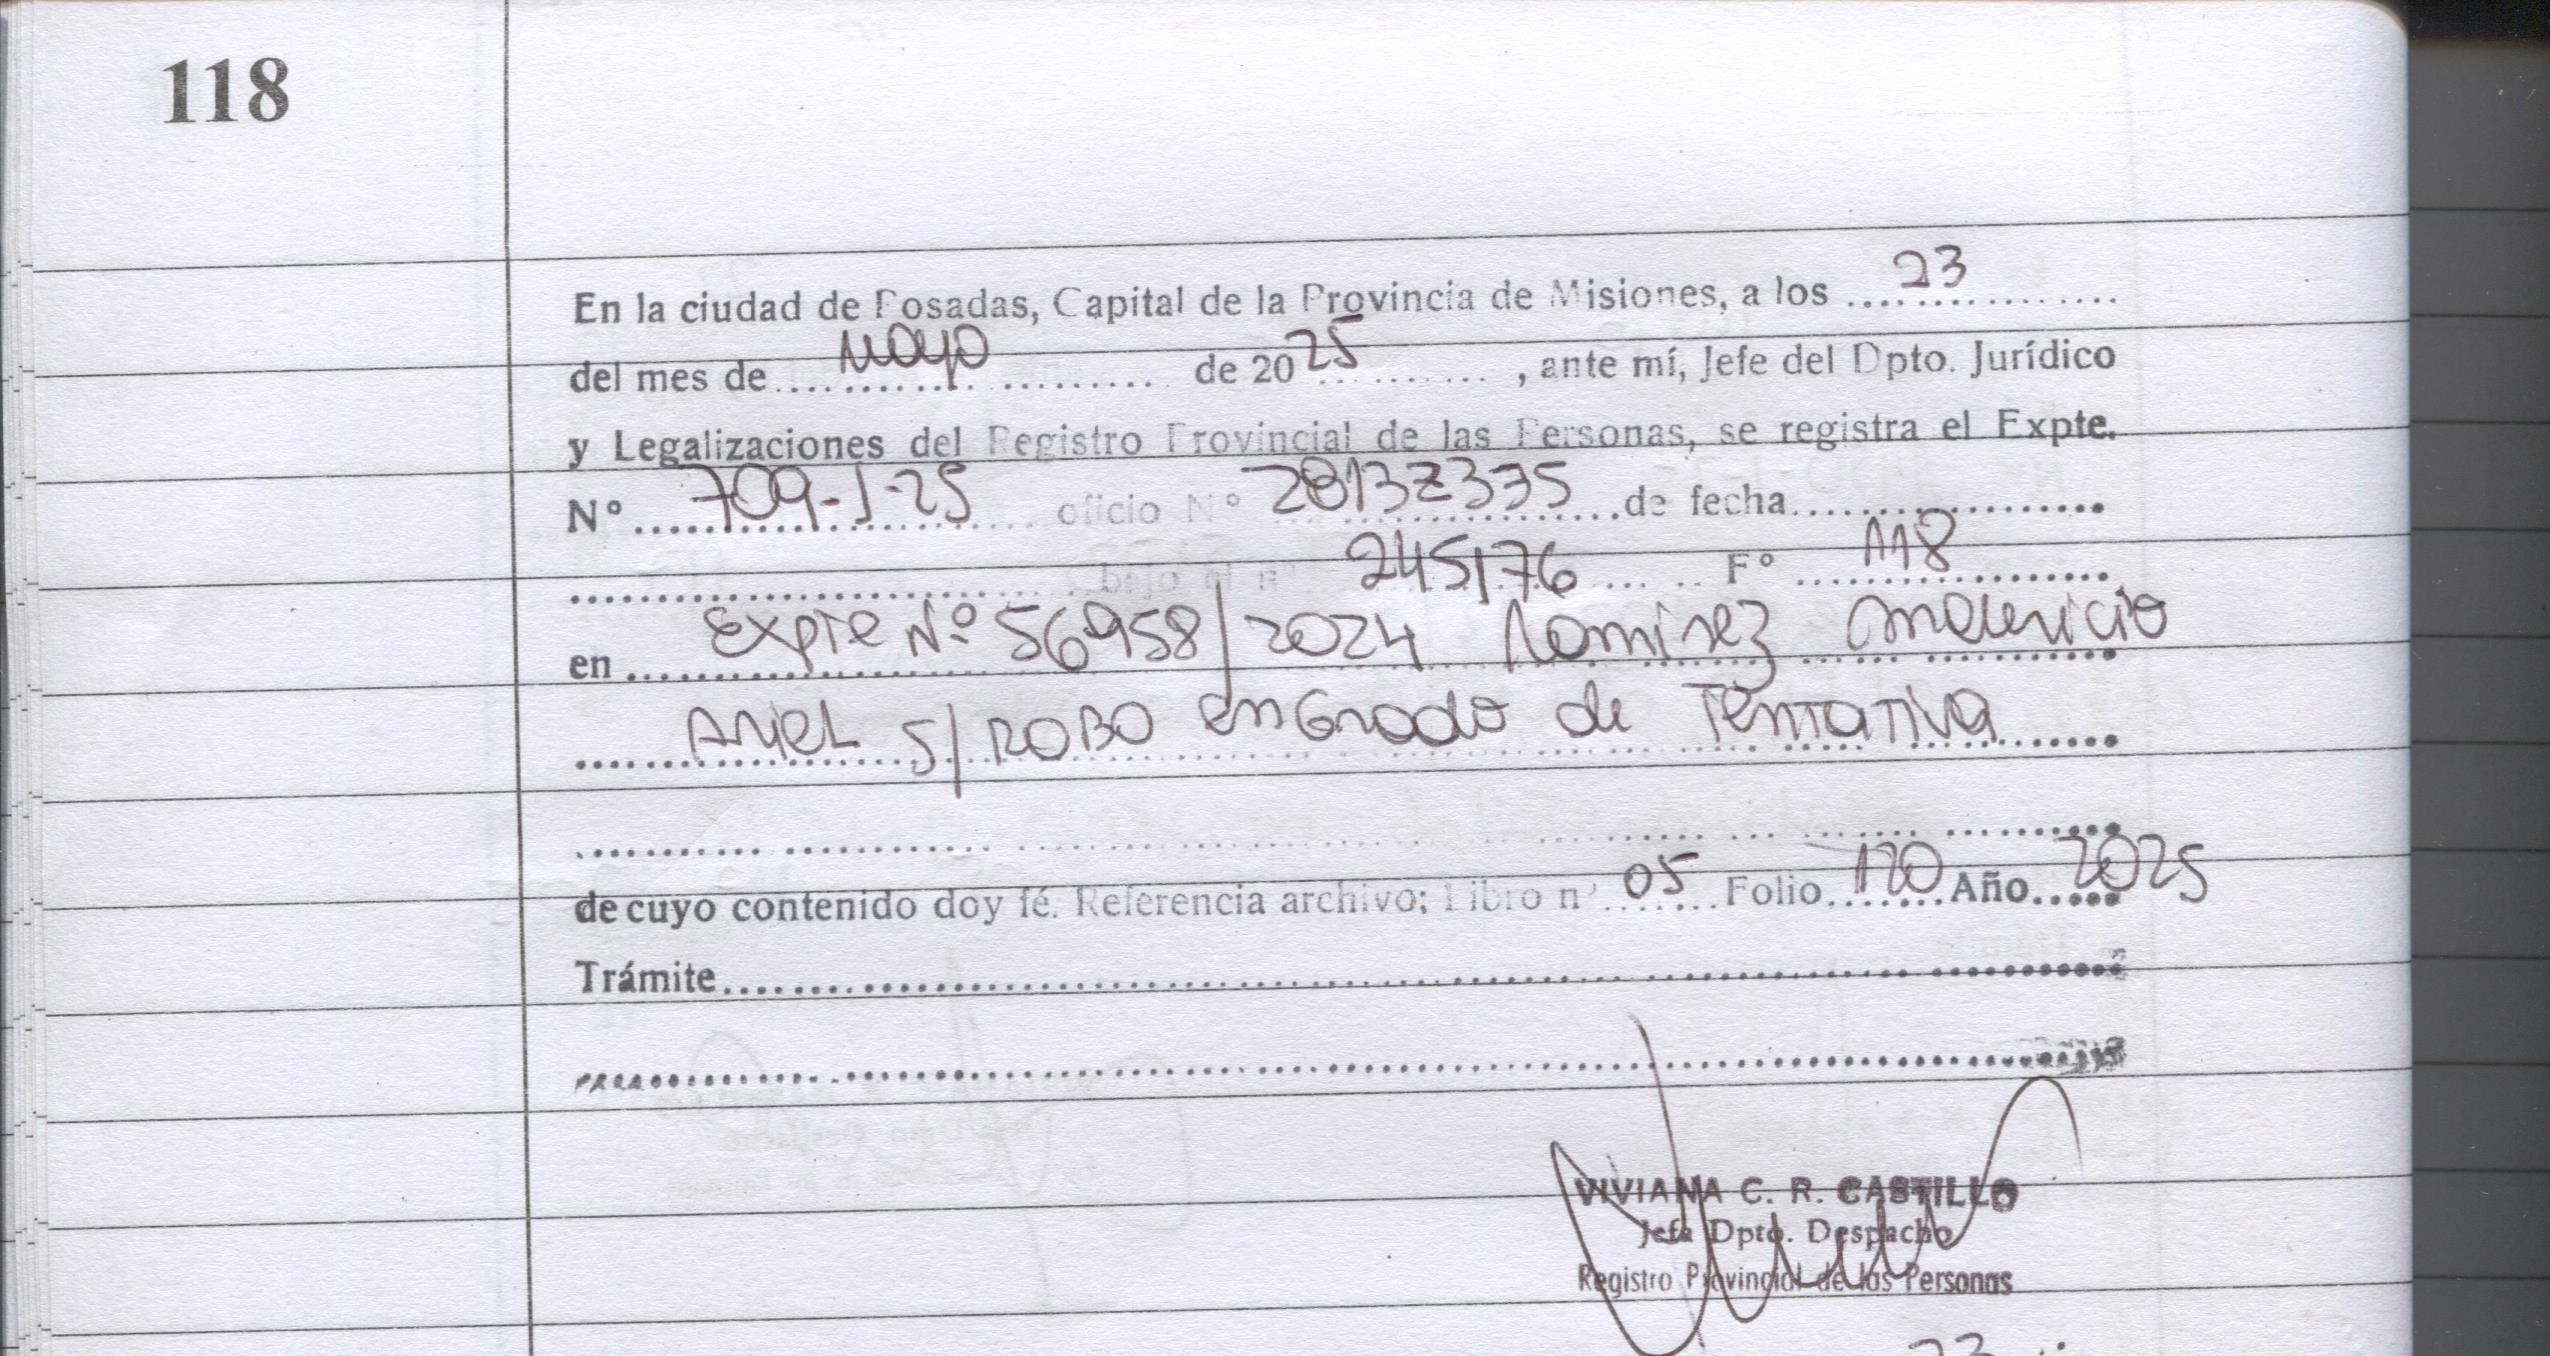 118
En la ciudad de Posadas, Capital de la Provincia de Misiones, a los 23
del mes de mayo de 2025, ante mí, Jefe del Dpto. Jurídico
y Legalizaciones del Registro Provincial de las Personas, se registra el Expte.
N° 709-J-25 oficio N° 28137335 de fecha
bajo el n° 245176 F° 118
en Expte Nº 56958/2024 Ramirez
Ariel S/ ROBO en Grado de Tentativa
de cuyo contenido doy fé. Referencia archivo; Libro n° 05 Folio 120 Año 2025
Trámite
VIVIANA C. R. CASTILLO
Jefa Dpto. Despacho
Registro Provincial de las Personas
23